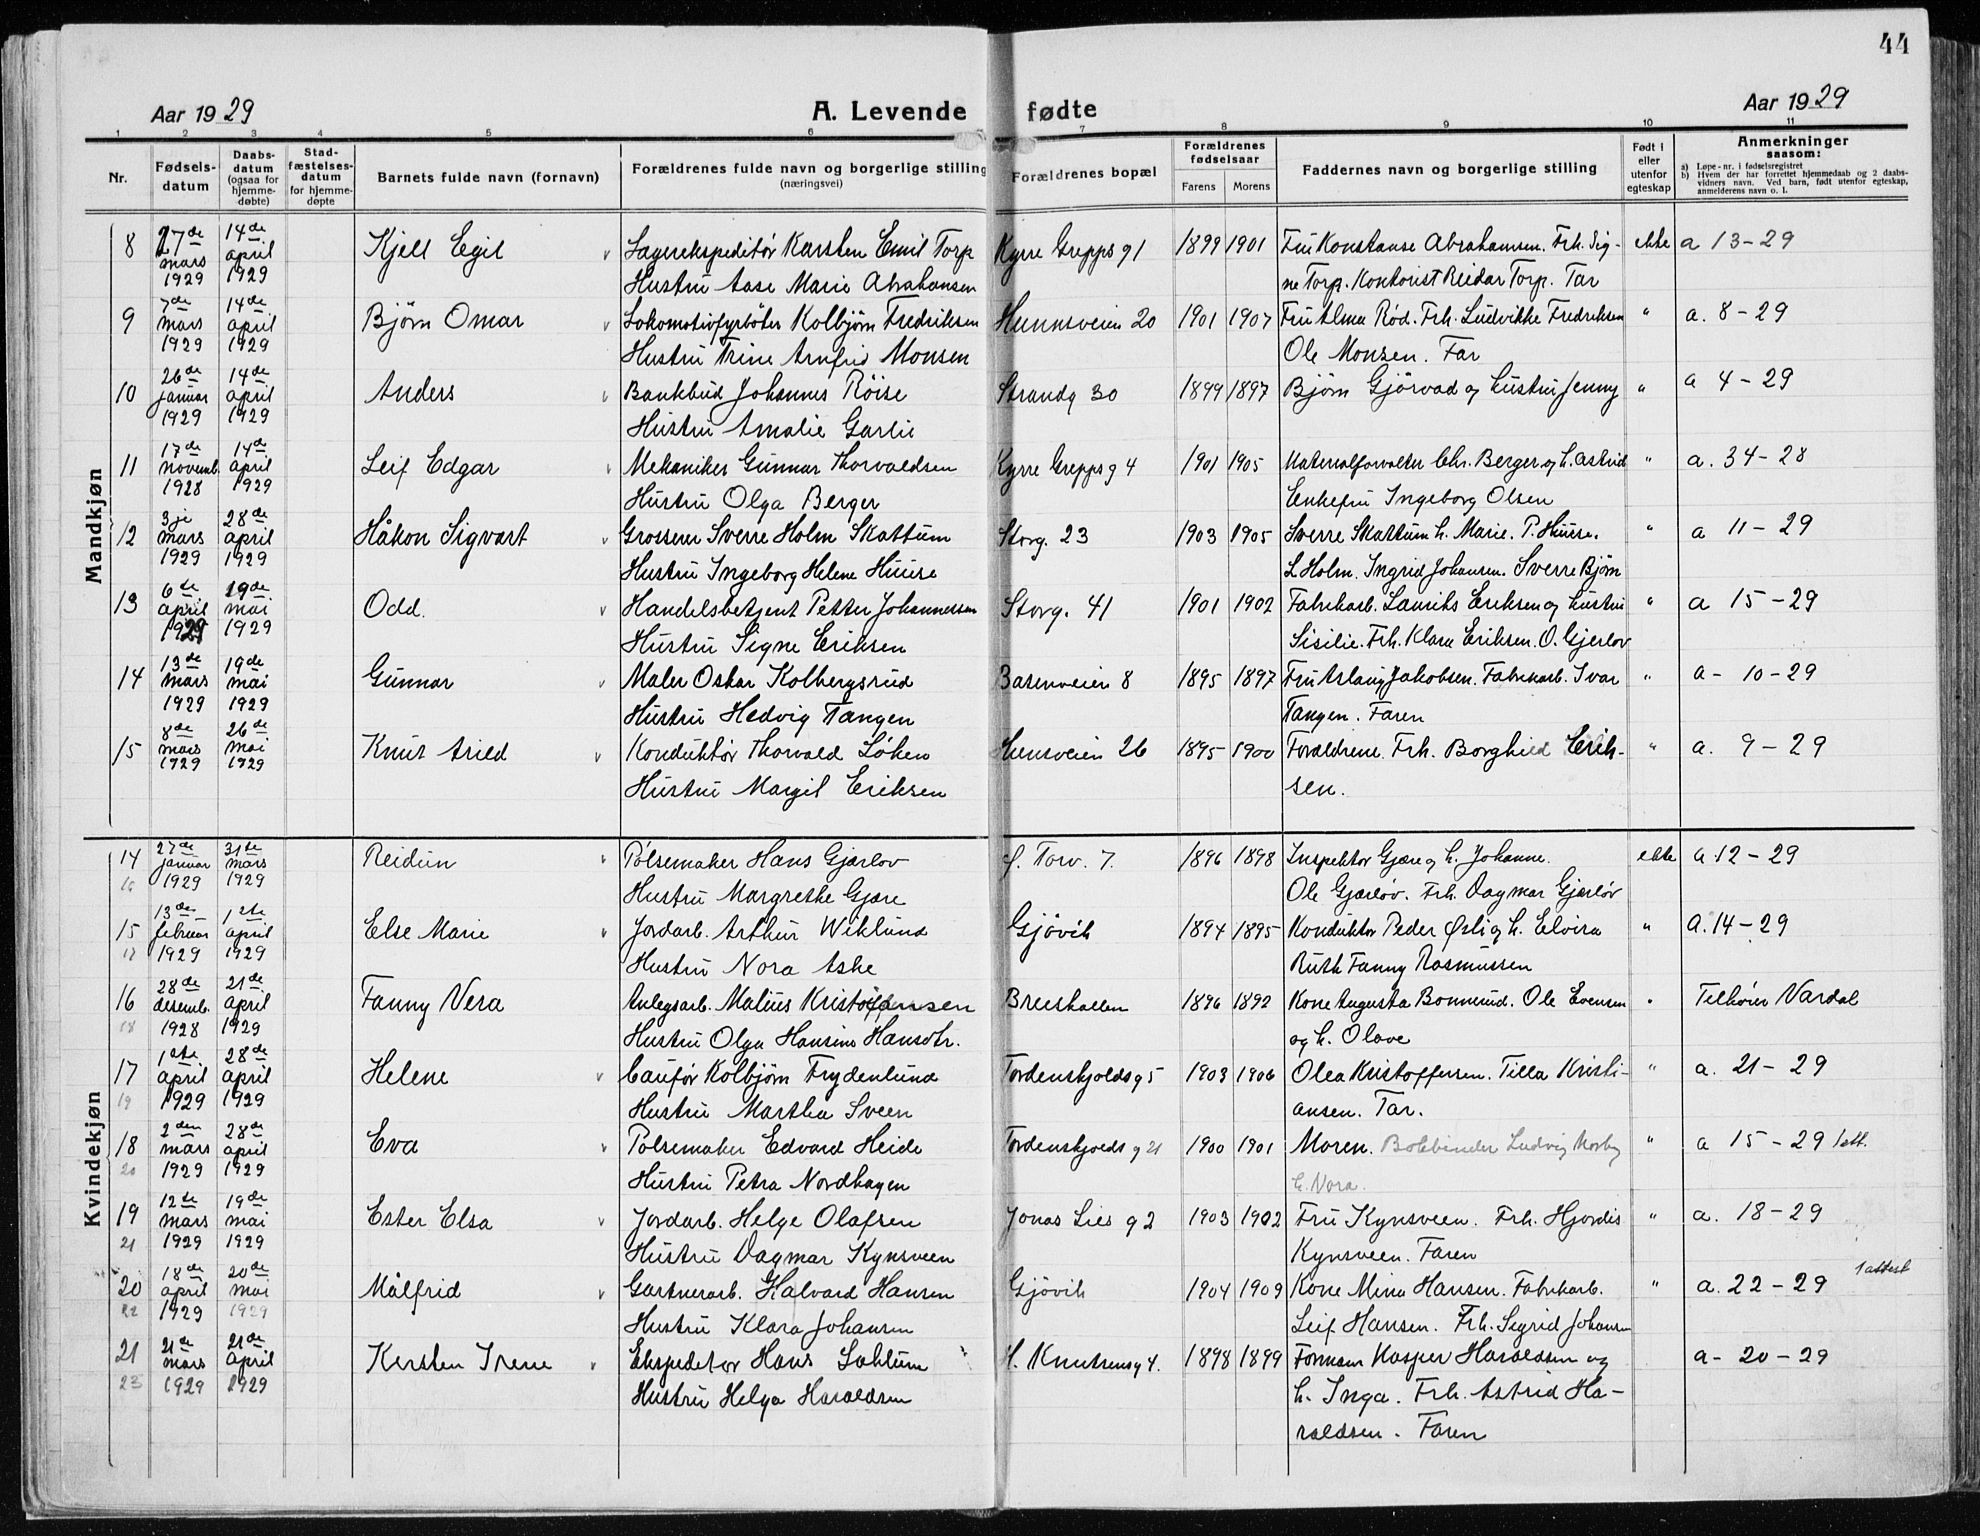 44
Aar 1929 A. Levende fødte Aar 1929
1 2 3 4 5 6 7 8 9 10 11
Nr. Fødselsdatum Daabsdatum (ogsaa for hjemmedøbte) Stadfæstelsesdatum for hjemmedøpte Barnets fulde navn (fornavn) Forældrenes fulde navn og borgerlige stilling (næringsvei) Forældrenes bopæl Forældrenes fødselsaar Farens Morens Faddernes navn og borgerlig stilling Født i eller utenfor egteskap Anmerkninger saasom:
a) Løpe-nr. i fødselsregistret
b) Hvem der har forrettet hjemmedaab og 2 daabsvidners navn. Ved barn, født utenfor egteskap, anmelderens navn o. l.
Mandkjøn
8 27de mars 1929 14de april 1929 Kjell Egil Lagerekspeditør Karsten Emil Torp Kyrre Greppsg 1 1899 1901 Fru Konstanse Abrahamsen. Frk. Sig- ekte a 13-29
Hustru Aase Marie Abrahamsen ne Torp. Kontorist Reidar Torp. Far
9 7de mars 1929 14de april 1929 Bjørn Omar Lokomotivfyrbøter Kolbjørn Fredriksen Hunnsveien 20 1901 1907 Fru Alma Rød. Frk. Ludvikke Fredriksen " a. 8-29
Hustru Trine Arnfrid Monsen Ole Monsen. Far
10 26de januar 1929 14de april 1929 Anders Bankbud Johannes Røise Strandg 30 1899 1897 Bjørn Gjörvad og hustru Jenny " a 4-29
Hustru Amalie Garlie
11 17de novemb. 1928 14de april 1929 Leif Edgar Mekaniker Gunnar Thorvaldsen Kyrre Greppsg 4 1901 1905 Materialforvalter Chr. Berger og h. Astrid " a. 34-28
Hustru Olga Berger Enkefru Ingeborg Olsen
12 3je mars 1929 28de april 1929 Håkon Sigvart Grosserer Sverre Holm Skattum Storg. 23 1903 1905 Sverre Skattum h. Marie. P. Huuse. " a 11-29
Hustru Ingeborg Helene Huuse L. Holm. Ingrid Johansen. Sverre Bjørn
13 6te april 1929 19de mai 1929 Odd. Handelsbetjent Petter Johannessen Storg. 41 1901 1902 Fabrikarb. Laurits Eriksen og hustru " a 15-29
Hustru Signe Eriksen Sisilie. Frk. Klara Eriksen. O. Gjerlov
14 13de mars 1929 19de mai 1929 Gunnar Maler Oskar Kolbergsrud Basenveien 8 1895 1897 Fru Aslaug Jakobsen. Fabrikarb. Ivar " a- 10-29
Hustru Hedvig Tangen Tangen. Faren
15 8de mars 1929 26de mai 1929 Knut Arild Konduktør Thorvald Løken Hunsveien 26 1895 1900 Forældrene. Frk. Borghild Erik- " a. 9-29
Hustru Margit Eriksen sen.
Kvindekjøn
14 16 27de januar 1929 31te mars 1929 Reidun Pølsemaker Hans Gjærløv f. Torv. 7. 1896 1898 Inspektør Gjære og h. Johanne. ekte a. 12-29
Hustru Margrethe Gjære Ole Gjærløv. Frk. Dagmar Gjærløv
15 17 13de februar 1929 1ste april 1929 Else Marie Jordarb. Arthur Wiklund Gjøvik 1894 1895 Konduktør Peder Øsli og h. Elvira " a. 14-29
Hustru Nora Aske Ruth Fanny Rasmussen
16 18 28de desemb. 1928 21de april 1929 Fanny Vera Anlegsarb. Malius Kristoffersen Breeskallen 1896 1892 Kone Augusta Bonnerud. Ole Evensen " Tilhører Vardal
Hustru Olga Hansine Hansdtr. og h. Olave
17 19 1ste april 1929 28de april 1929 Helene Caufør Kolbjørn Frydenlund Tordenskjoldsg 5 1903 1906 Olea Kristoffersen. Tilla Kristi- " a. 21-29
Hustru Martha Sveen ansen. Far.
18 20 2den mars 1929 28de april 1929 Eva Pølsemaker Edvard Heide Tordenskjolds g 21 1900 1901 Moren. Bokbinder Ludvig Norby " a 15-29 1 att.
Hustru Petra Nordhagen h. Nora.
19 21 12te mars 1929 19de mai 1929 Ester Elsa Jordarb. Helge Olafsen Jonas Lies g 2 1903 1902 Fru Kynsveen. Frk. Hjordis " a. 18-29
Hustru Dagmar Kynsveen Kynsveen. Faren
20 22 18de april 1929 20de mai 1929 Målfrid Gartnerarb. Halvard Hansen Gjøvik 1904 1909 Kone Mina Hansen. Fabrikarb. " a. 22-29 1 attest
Hustru Klara Johansen Leif Hansen. Frk. Sigrid Johansen
21 23 21de mars 1929 21de april 1929 Kirsten Irene Ekspeditør Hans Sahlum H. Knutsensg 4. 1898 1899 Formann Kasper Haraldsen og a- 20-29
Hustru Helga Haraldsen h. Inga. Frk. Astrid Ha-
raldsen. Faren